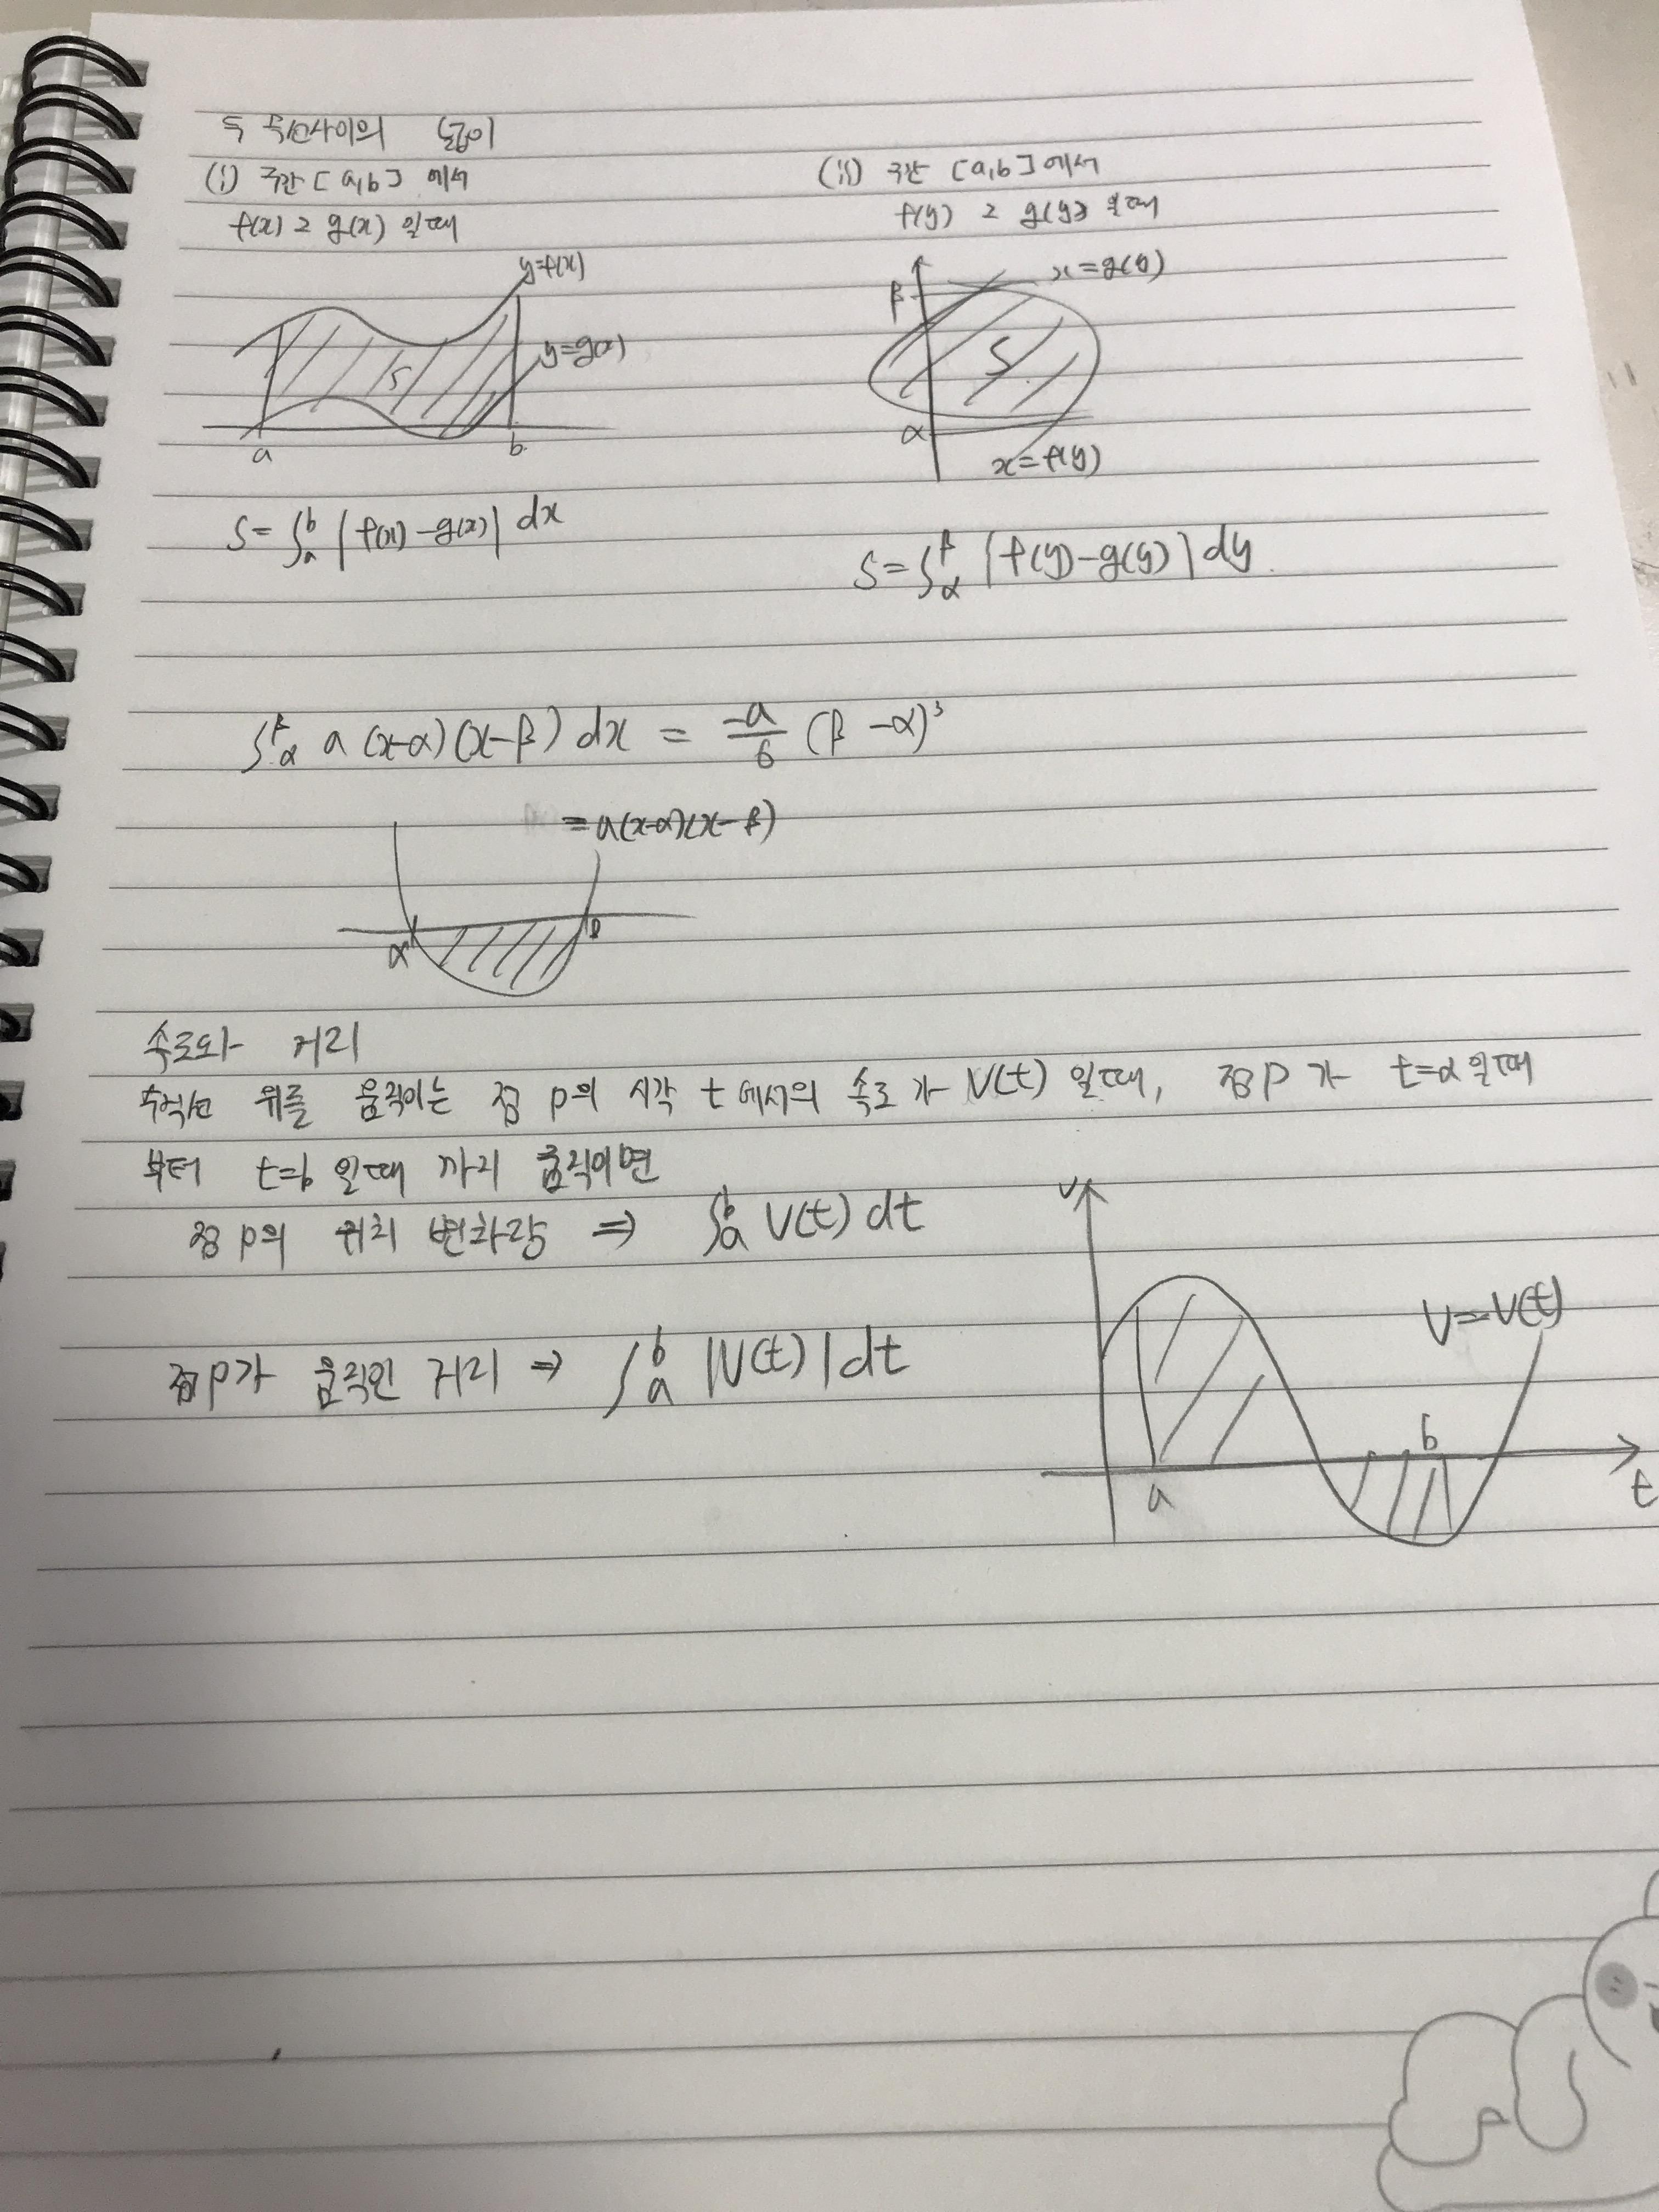 두 곡선사이의 넓이
(i) 구간 [a,b] 에서
f(x) ≥ g(x) 일때
y=f(x)
y=g(x)
S
a
b
S=∫ₐᵇ |f(x)-g(x)| dx
(ii) 구간 [a,b] 에서
f(y) ≥ g(y) 일때
x=g(y)
β
S
α
x=f(y)
S=∫_α^β |f(y)-g(y)| dy
∫_α^β a(x-α)(x-β) dx = -a/6 (β-α)³
=a(x-α)(x-β)
α
β
속도와 거리
수직선 위를 움직이는 점 P의 시각 t 에서의 속도가 V(t) 일때, 점P가 t=a 일때
부터 t=b 일때 까지 움직이면
점 P의 위치 변화량 ⇒ ∫ₐᵇ V(t) dt
점P가 움직인 거리 ⇒ ∫ₐᵇ |V(t)| dt
v
V=V(t)
b
a
t